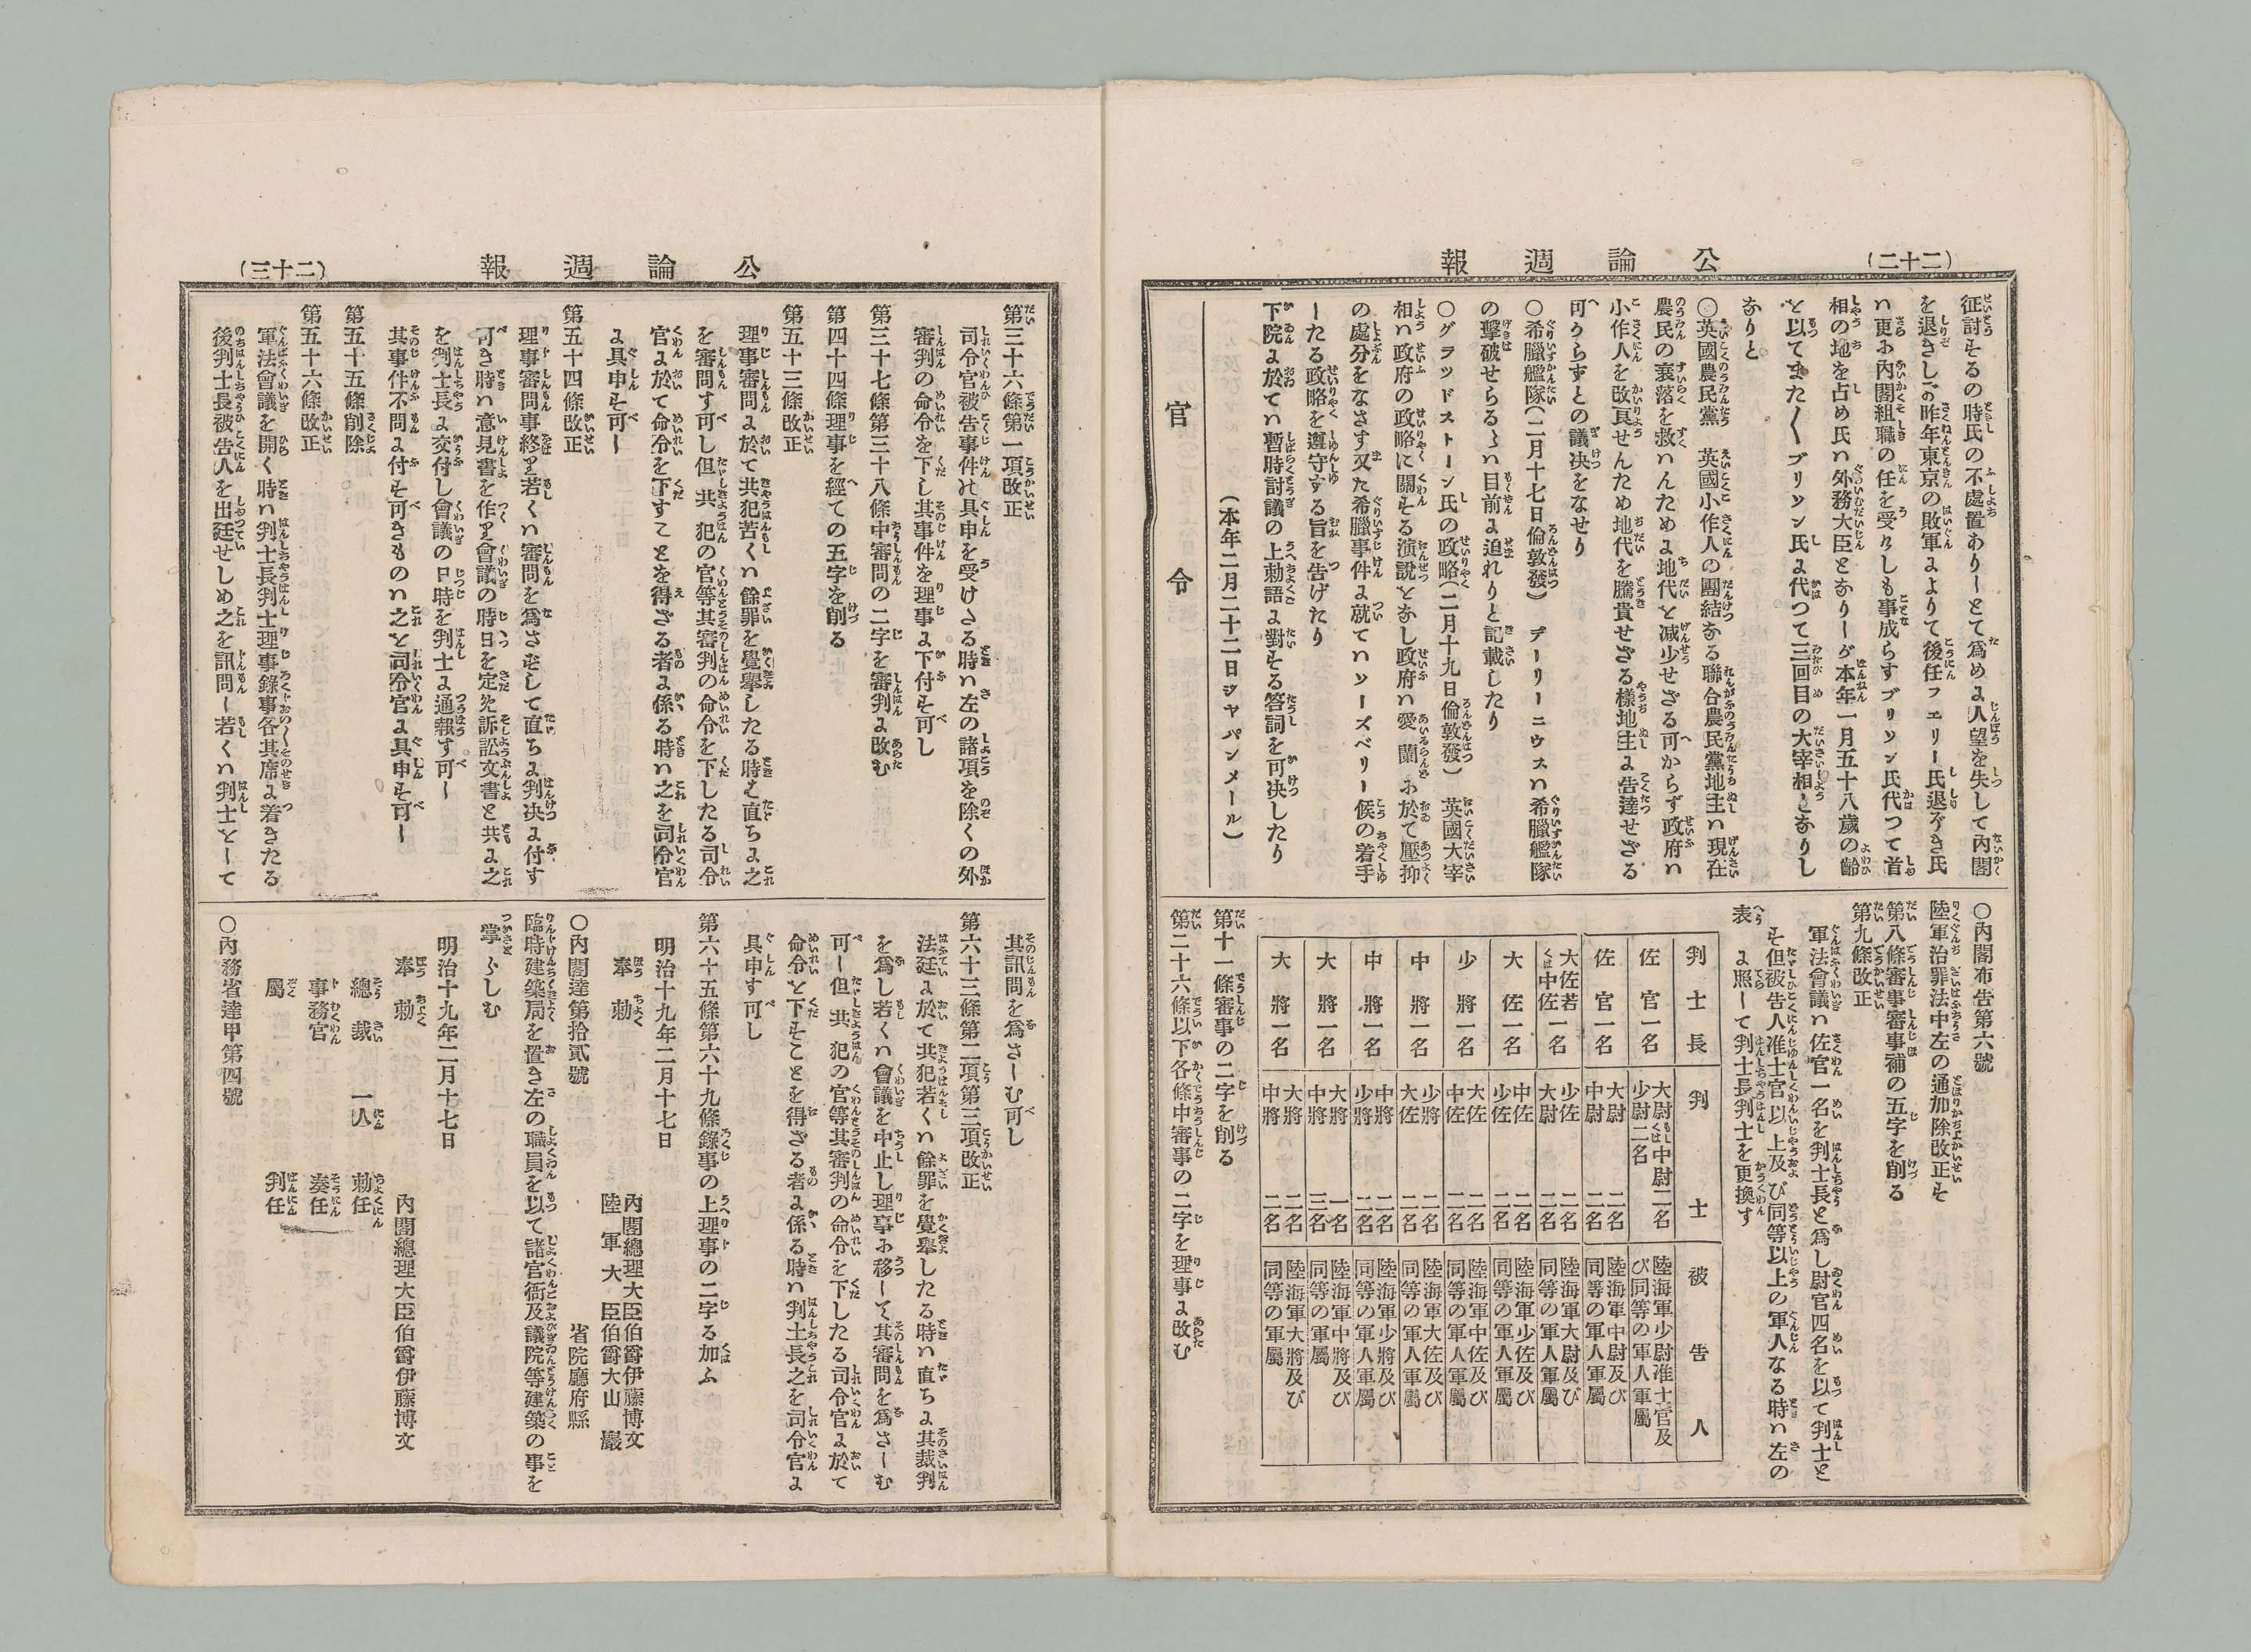 公論週報
(二十二)
征討するの時氏の不處置ありしとて爲めに人望を失して內閣
を退きしが昨年東京の敗軍によりて後任フエリー氏退ぞき氏
は更に內閣組職の任を受けしも事成らずブリソン氏代つて首
相の地を占め氏は外務大臣となりしが本年一月五十八歳の齡
を以てまた〱ブリソン氏に代つて三回目の大宰相となりし
なりと
〇英國農民黨 英國小作人の團結なる聯合農民黨地主は現在
農民の衰落を救はんために地代を減少せざる可からず政府は
小作人を改良せんため地代を騰貴せざる樣地主に告達せざる
可からずとの議决をなせり
〇希臘艦隊(二月十七日倫敦發) デーリーニウスは希臘艦隊
の擊破せらるゝは目前に迫れりと記載したり
〇グラッドストーン氏の政略(二月十九日倫敦發) 英國大宰
相は政府の政略に關する演說をなし政府は愛蘭に於て壓抑
の處分をなさず又た希臘事件に就てはソーズベリー候の着手
したる政略を遵守する旨を告げたり
下院に於ては暫時討議の上勅語に對する答詞を可决したり
(本年二月二十二日ジャパンメール)
官令
〇內閣布告第六號
陸軍治罪法中左の通加除改正す
第八條審事審事補の五字を削る
第九條改正
軍法會議は佐官一名を判士長と爲し尉官四名を以て判士と
す但被告人准士官以上及び同等以上の軍人なる時は左の
表に照して判士長判士を更換す
判士長 判士 被告人
佐官一名 大尉若くは中尉二名 少尉二名 陸海軍少尉准士官及び同等の軍人軍屬
佐官一名 大尉二名 中尉二名 陸海軍中尉及び同等の軍人軍屬
大佐若くは中佐一名 少佐二名 大尉二名 陸海軍大尉及び同等の軍人軍屬
大佐一名 中佐二名 少佐二名 陸海軍少佐及び同等の軍人軍屬
少將一名 大佐二名 中佐二名 陸海軍中佐及び同等の軍人軍屬
中將一名 少將二名 大佐二名 陸海軍大佐及び同等の軍人軍屬
中將一名 中將二名 少將二名 陸海軍少將及び同等の軍人軍屬
大將一名 大將一名 中將三名 陸海軍中將及び同等の軍屬
大將一名 大將二名 中將二名 陸海軍大將及び同等の軍屬
第十一條審事の二字を削る
第二十六條以下各條中審事の二字を理事に改む
公論週報
(二十三)
第三十六條第一項改正
司令官被告事件の具申を受けたる時は左の諸項を除くの外
審判の命令を下し其事件を理事に下付す可し
第三十七條第三十八條中審問の二字を審判に改む
第四十四條理事を經ての五字を削る
第五十三條改正
理事審問に於て共犯若くは餘罪を覺擧したる時は直ちに之
を審問す可し但共犯の官等其審判の命令を下したる司令
官に於て命令を下すことを得ざる者に係る時は之を司令官
に具申す可し
第五十四條改正
理事審問事終り若くは審問を爲さずして直ちに判决に付す
可き時は意見書を作り會議の時日を定め訴訟文書と共に之
を判士長に交付し會議の日時を判士に通報す可し
其事件不問に付す可きものは之を司令官に具申す可し
第五十五條削除
第五十六條改正
軍法會議を開く時は判士長判士理事錄事各其席に着きたる
後判士長被告人を出廷せしめ之を訊問し若くは判士をして
其訊問を爲さしむ可し
第六十三條第二項第三項改正
法廷に於て共犯若くは餘罪を覺擧したる時は直ちに其裁判
を爲し若くは會議を中止し理事に移して其審問を爲さしむ
可し但共犯の官等其審判の命令を下したる司令官に於て
命令を下すことを得ざる者に係る時は判士長之を司令官に
具申す可し
第六十五條第六十九條錄事の上理事の二字を加ふ
明治十九年二月十七日
奉勅 內閣總理大臣伯爵伊藤博文
陸軍大臣伯爵大山巖
〇內閣達第拾貳號 省院廳府縣
臨時建築局を置き左の職員を以て諸官衙及議院等建築の事を
掌らしむ
明治十九年二月十七日
奉勅 內閣總理大臣伯爵伊藤博文
總裁 一人 勅任
事務官 奏任
屬 判任
〇內務省達甲第四號